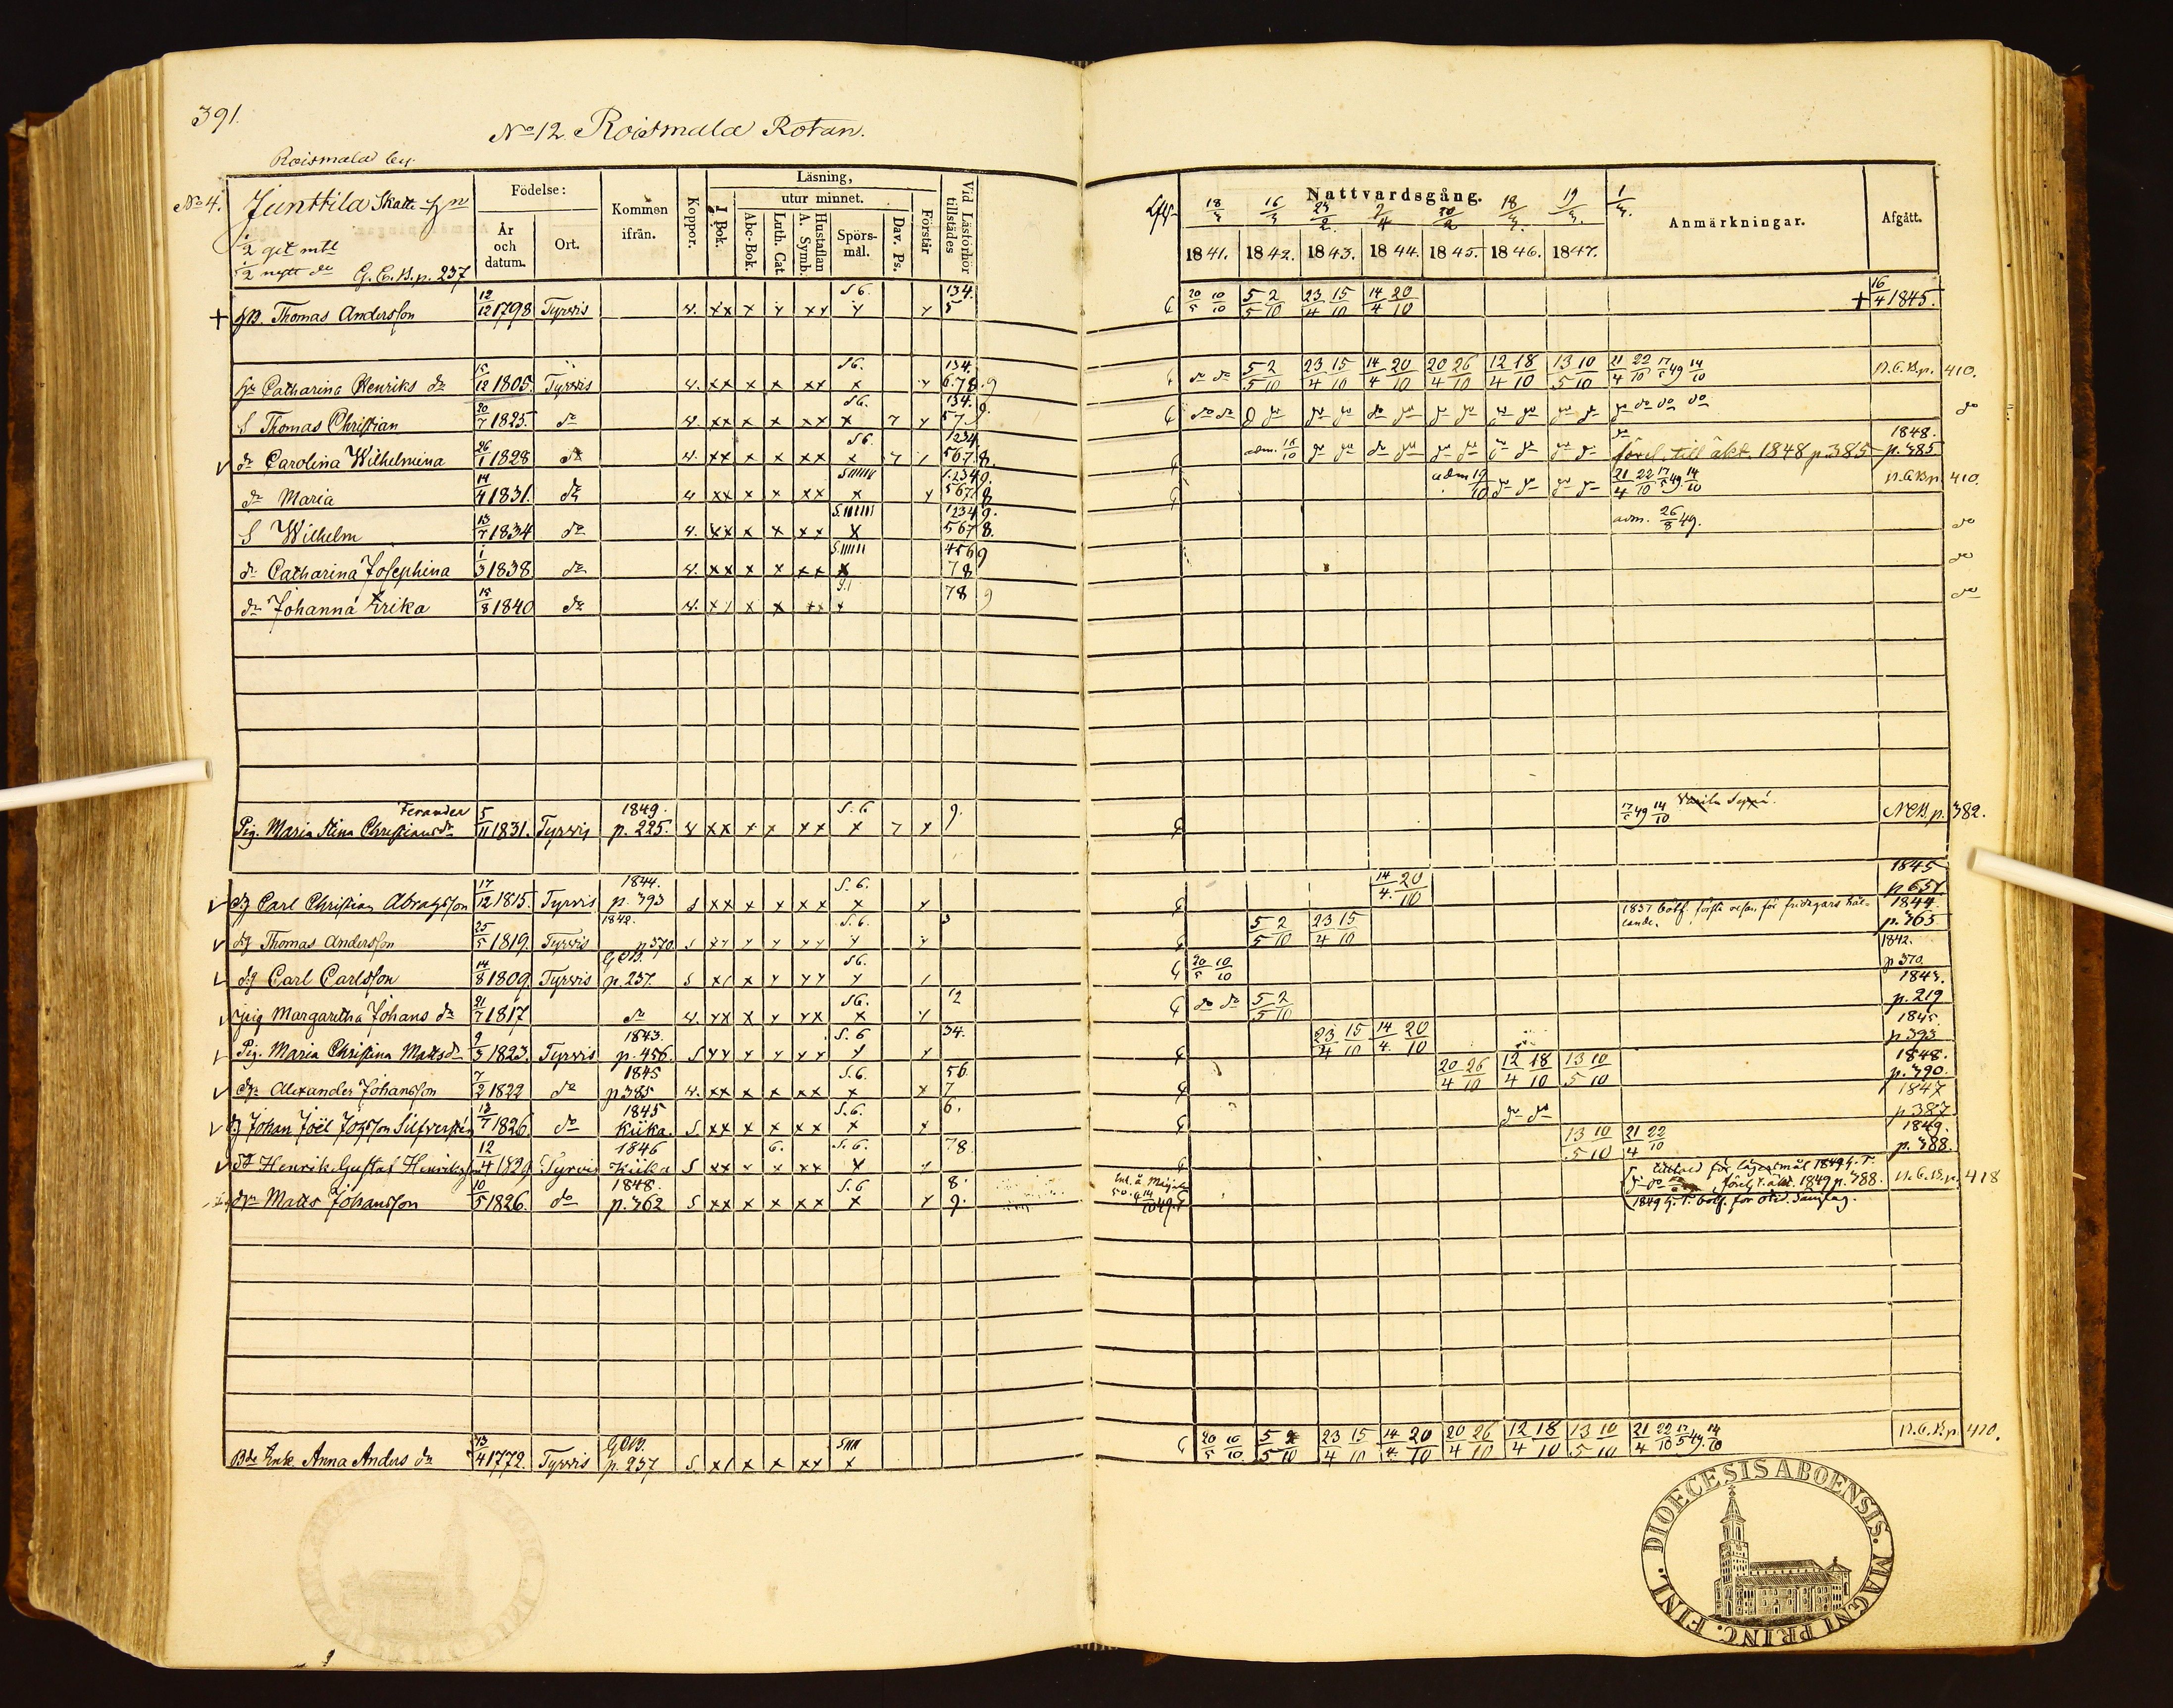 391.
No 12. Roismala Rotan.
Roismala by.
No 4. Junttila Skatte
1/2 get mtl
1/2 nytt do G.C.B.p. 237
Födelse:
År och datum.
Ort.
Kommen ifrån.
Koppor.
Läsning,
I Bok.
utur minnet.
Abc-Bok.
Luth. Cat.
Hustaflan A. Symb.
Spörsmål.
Dav. Ps.
Förstår
Vid Läsförhör tillstädes
Nattvardsgång.
18/3 16/3 18/3 19/3 1/3
1841. 1842. 1843. 1844. 1845. 1846. 1847.
Anmärkningar.
Afgått.
+ Thomas Andersson 12/12 1798 Tyrvis v. xx x x xx S6. x x 134. 5 20/5 10/10 5/5 2/10 23/4 15/10 14/4 20/10 + 16/4 1845.
Catharina Henriks dr 15/12 1805 Tyrvis v. xx x x xx S6. x x 134. 678.9 do do 5/5 2/10 23/4 15/10 14/4 20/10 20/4 26/10 12/4 18/10 13/5 10/10 21/4 22/10 17/5 49 14/10 N.C.B.p. 410.
S Thomas Christian 20/7 1825 do v. xx x x xx S6. x 7 x 134. 57 9. do do do do do do do do do do do do
dr Carolina Wilhelmina 26/1 1828 do v. xx x x xx S6. x 7 1234. 567.8. adm. 16/10 do do do do do do förel. till äkt. 1848 p 385 1848. p. 385
dr Maria 14/4 1831. do v xx x x xx x x 1.234 9. 567 8 adm 19/10 do do do do 21/4 22/10 17/5 49. 14/10 N.C.B.p 410.
S Wilhelm 13/7 1834 do v. xx x x xx x 1234 9. 567 8. adm. 26/8 49. do
dr Catharina Josephina 1/3 1838 do v. xx x x xx x 456 9 78 do
dr Johanna Erika 15/8 1840 do v. xx x x xx x 78 9 do
Ferander
Pig. Maria Stina Christiansdr 5/11 1831. Tyrvis 1849. p. 225. v xx x x xx S.6 x 7 x 9. 17/5 49 14/10 N.C.B.p. 382.
Carl Christian 17/12 1815. Tyrvis 1844. p. 393 S xx x x xx S.6. x x 14/4. 20/10 1845 p 657.
dg Thomas Andersson 25/5 1819. Tyrvis 1842. p 370. S xx x x xx S.6. x x 3 5/5 2/10 23/4 15/10 1844. p. 365
dg Carl Carlsson 14/8 1809. Tyrvis GCB. p. 237. S x x xx S6. x 20/5 10/10 1842. p 370.
pig Margaretha Johans dr 21/7 1817 do v. xx x x xx S6. x x 12 do do 5/5 2/10 1843. p. 219
Pig. Maria Christina Mattsdr 9/3 1823. Tyrvis 1843. p. 456. S xx x x xx S.6 x x 34. 23/4 15/10 14/4. 20/10 1845. p 393
Alexander Johansson 7/2 1822 do 1845 p 385 v. xx x x xx S.6. x x 56. 7 20/4 26/10 12/4 18/10 13/5 10/10 1848. p. 390.
Johan Joël 13/7 1826. do 1845 Kiika. S. xx x x xx S.6. x x 6. do do 1847 p 387
Henrik Gustaf 12/4 1829 Tyrvis 1846 Kiika S xx x 6. xx S.6. x x 78. 13/5 10/10 21/4 22/10 1849. p. 388.
Matts Johansson 10/5 1826. do 1848. p. 362 S xx x x xx S.6 x x 8. 9. för lägersmål 1849 förel. t. äkt. 1849 p. 388. 1849 N.C.B.p. 418
Bde Enk. Anna Anders dr 13/4 1772. Tyrvis GCB. p. 237 S. x x x xx x 20/5 10/10. 5/5 2/10 23/4 15/10 14/4. 20/10 20/4 26/10 12/4 18/10 13/5 10/10 21/4 22/10 17/5 49. 14/10 N.C.B.p. 410.
DIOECESIS ABOENSIS. MAGNI PRINC. FINL.